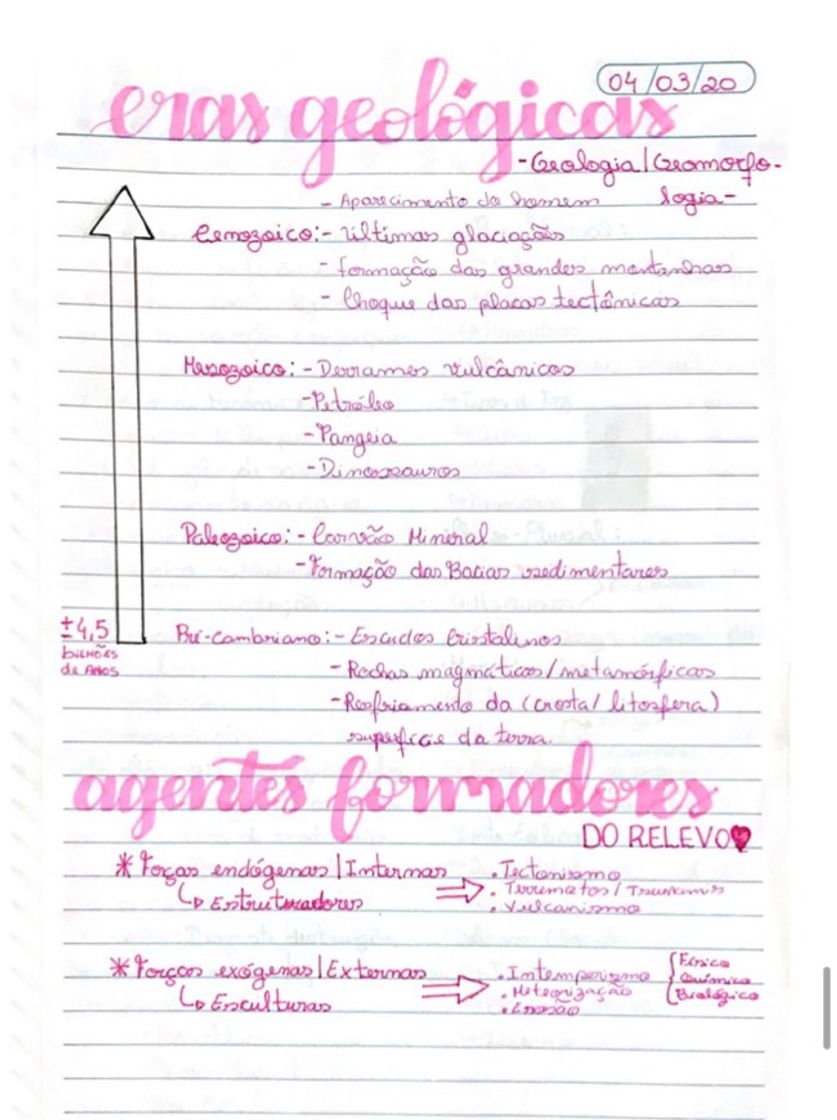 04/03/20
eras geológicas
-Geologia/Geomorfo-
logia-
- Aparecimento do homem
Cenozoico:- últimas glaciações
- formação das grandes montanhas
- Choque das placas tectônicas
Mesozoico: - Derrames vulcânicos
-Petróleo
-Pangeia
-Dinossauros
Paleozoico: - Carvão Mineral
-Formação das Bacias sedimentares
±4,5
bilhões
de Anos
Pré-cambriano:- Escudos Cristalinos
- Rochas magmáticas/metamórficas
-Resfriamento da (crosta/litosfera)
superfície da terra.
agentes formadores
DO RELEVO
* Forças endógenas|Internas
↳ Estruturadores
⇒
. Tectonismo
. Terremotos/Tsunamis
. Vulcanismo
* Forças exógenas|Externas
↳ Esculturas
⇒
. Intemperismo
. Meteorização
. Erosão
{Físico
Químico
Biológico